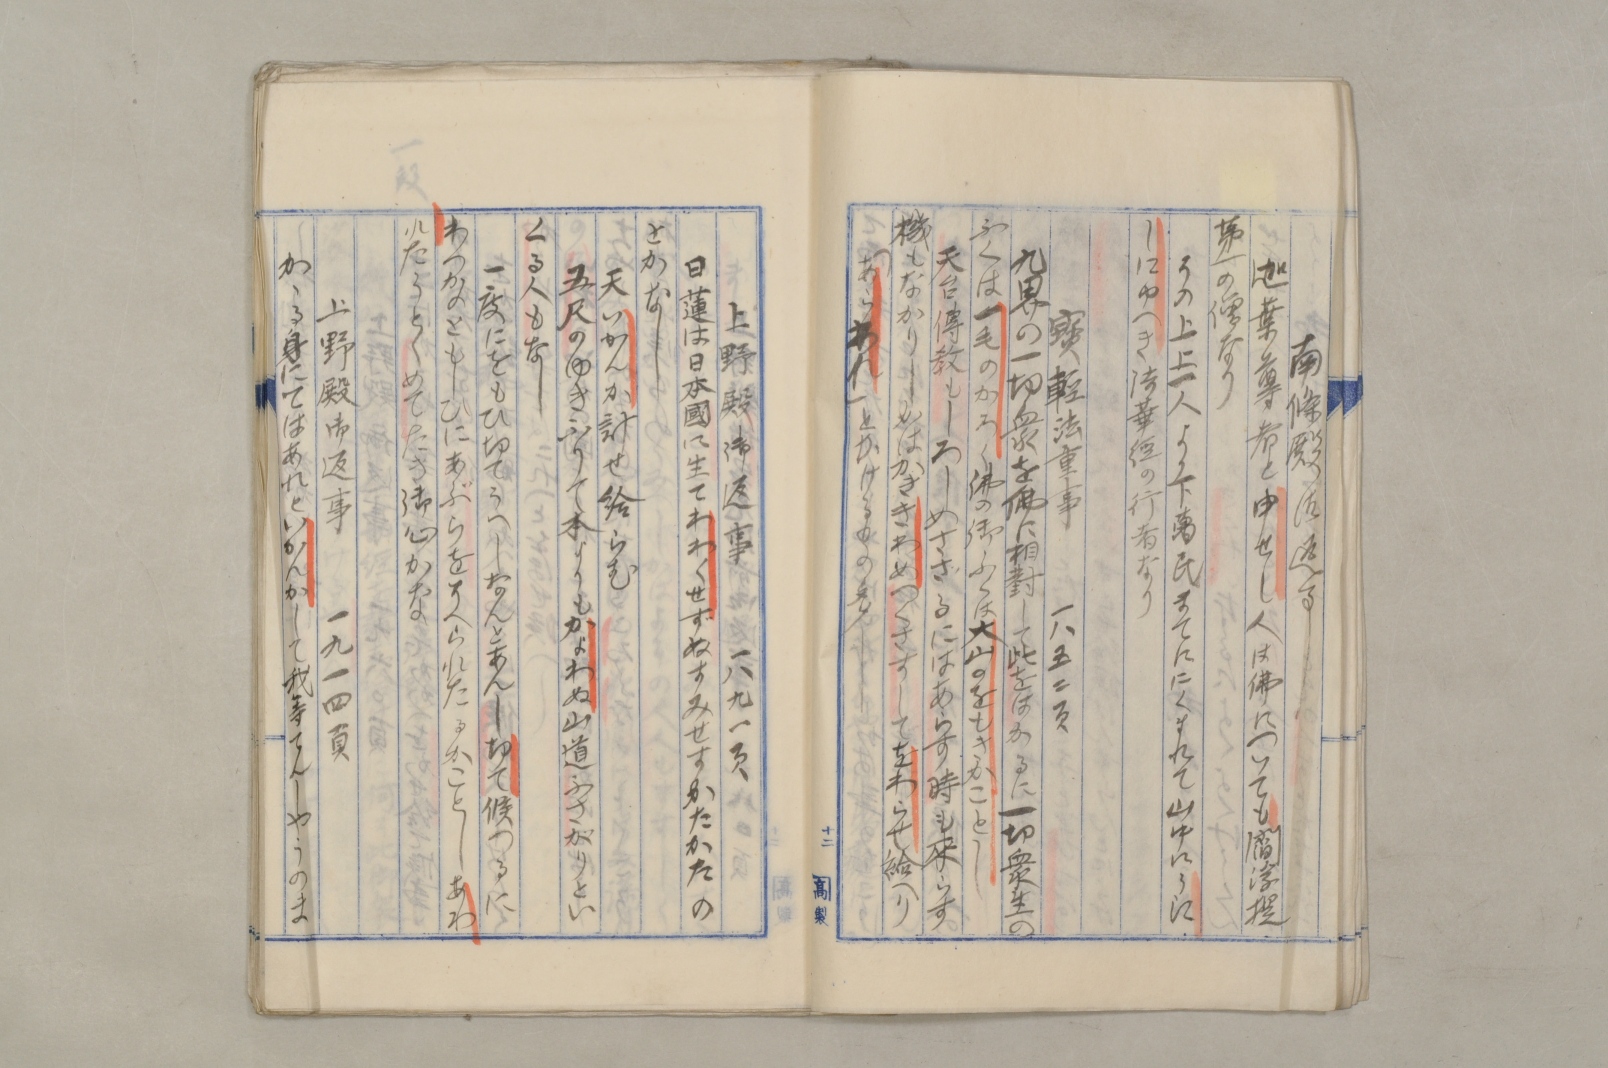 南條殿御返事
迦葉尊者と申せし人は佛についても閻浮提
第一の僧なり
その上上一人より下萬民まてににくまれて山中にうに
しにゆへき法華経の行者なり
寳軽法重事　一八五二頁
九界の一切衆を佛に相對して此をはかるに一切衆生の
ふくは一毛のかろく佛の御ふくは大山のをもきかことし
天台傳教もしろしめさざるにはあらす時も来らす
機もなかりしかはかききわめつくさすしてをわらせ給へり
あらあれ
十二
高製
上野殿御返事　一八九一頁
日蓮は日本國に生てわわくせずぬすみせすかたかたの
とかなし
天いかんか計せ給らむ
五尺のゆきふりて本よりもかよわぬ山道ふさがりとい
くる人もなし
一度にをもひ切てうへしなんとあんし切て候つるに
わつかのともしひにあぶらをそへられたるかことしあわ
れたうとくめてたき御心かな
上野殿御返事　一九一四頁
かゝる身にてはあれといかんかして我等てんしやうのま